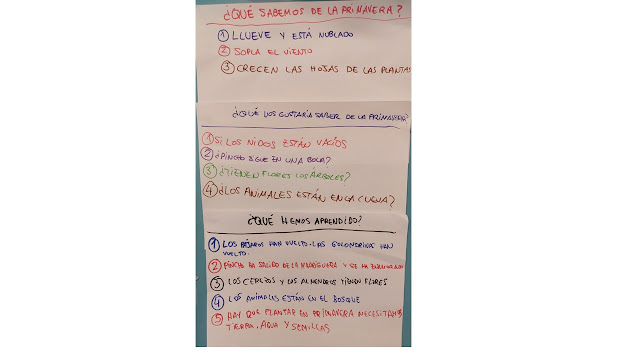 ¿QUÉ SABEMOS DE LA PRIMAVERA?
1 LLUEVE Y ESTÁ NUBLADO
2 SOPLA EL VIENTO
3 CRECEN LAS HOJAS DE LAS PLANTAS
¿QUÉ NOS GUSTARÍA SABER DE LA PRIMAVERA?
1 SI LOS NIDOS ESTÁN VACÍOS
2 ¿PINCHO SIGUE EN UNA BOLA?
3 ¿TIENEN FLORES LOS ÁRBOLES?
4 ¿LOS ANIMALES ESTÁN EN LA CUEVA?
¿QUÉ HEMOS APRENDIDO?
1 LOS PÁJAROS HAN VUELTO. LAS GOLONDRINAS HAN
VUELTO.
2 PINCHO HA SALIDO DE LA MADRIGUERA Y SE HA
3 LOS CEREZOS Y LOS ALMENDROS TIENEN FLORES
4 LOS ANIMALES ESTÁN EN EL BOSQUE
5 HAY QUE PLANTAR EN PRIMAVERA NECESITAMOS
TIERRA, AGUA Y SEMILLAS